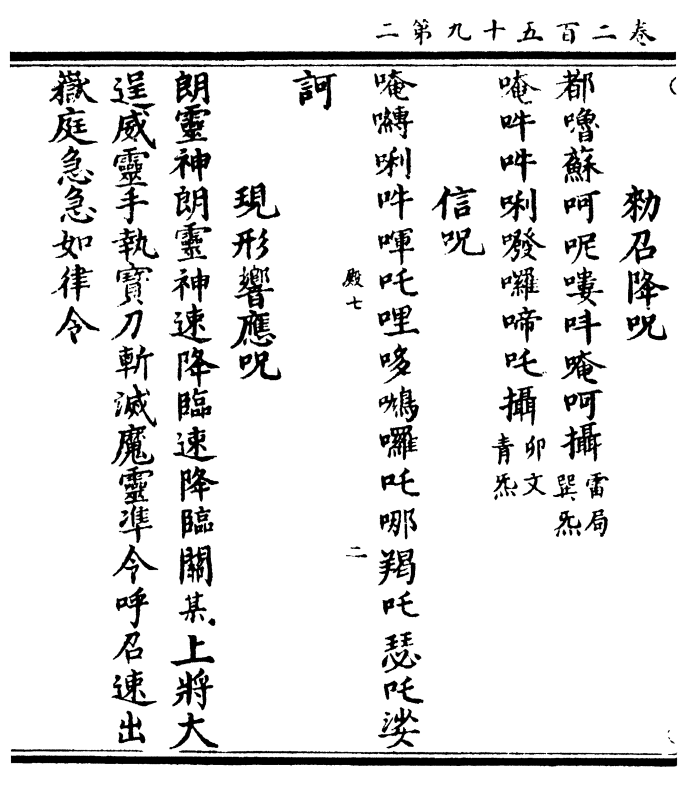 卷二百五十九第二
勑召降呪
都嚕蘇呵呢嘍吽唵呵攝雷局巽炁
唵吽吽唎發囉啼吒攝卯文青炁
信呪
唵嚩唎吽㖇吒哩哆囉吒哪羯吒瑟吒娑
殿七
二
訶
現形響應呪
朗靈神朗靈神速降臨速降臨關某上將大
逞威靈手執寶刀斬滅魔靈準令呼召速出
嶽庭急急如律令